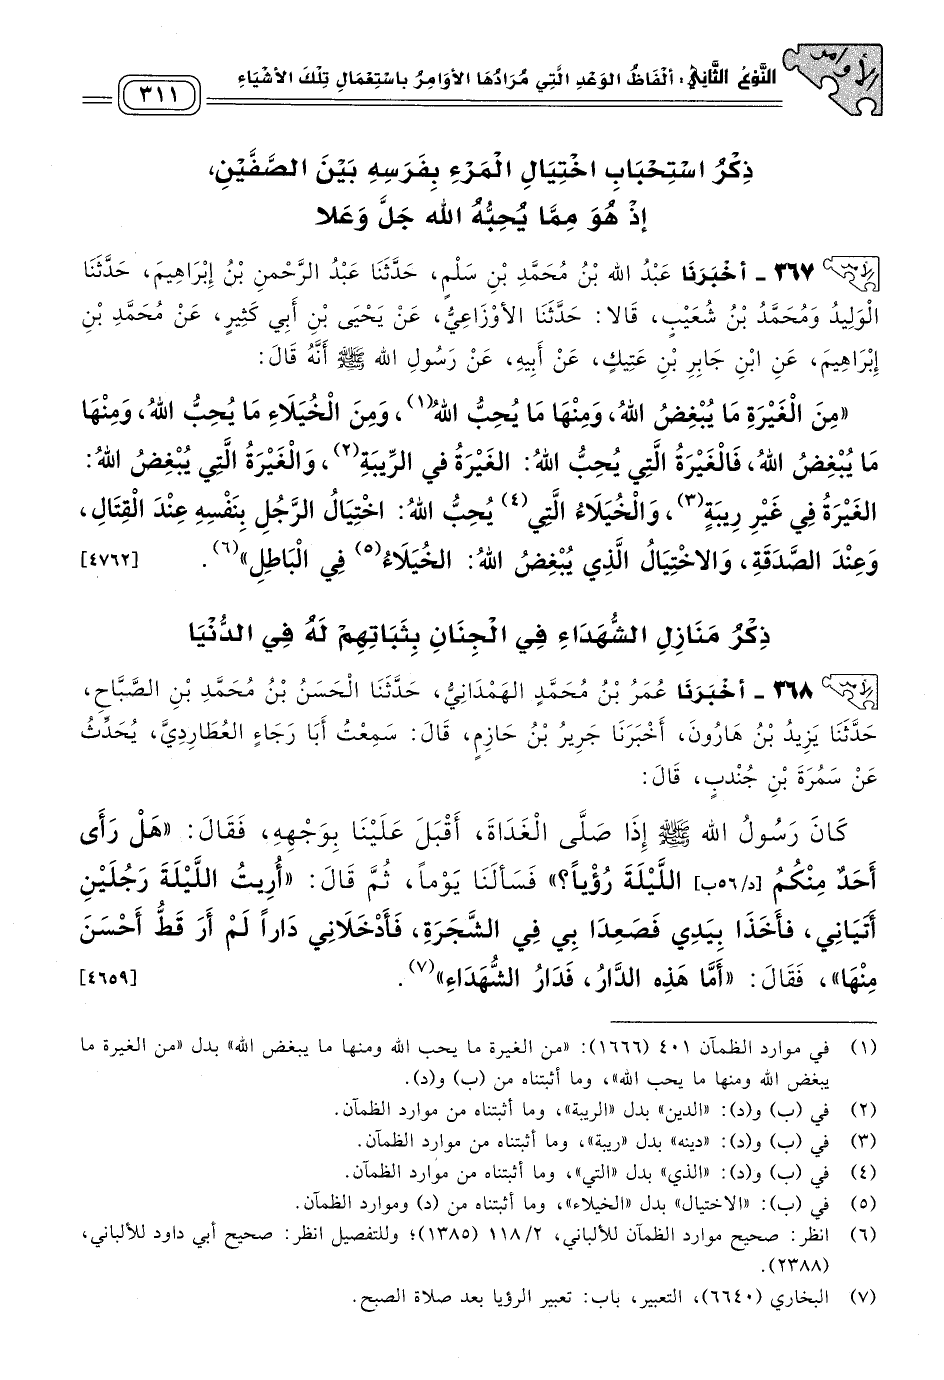 الأوامر
النَّوْعُ الثَّانِي: أَلْفَاظُ الوَعْدِ الَّتِي مُرَادُهَا الأَوَامِرُ بِاسْتِعْمَالِ تِلْكَ الأَشْيَاءِ
٣١١
ذِكْرُ اسْتِحْبَابِ اخْتِيَالِ الْمَرْءِ بِفَرَسِهِ بَيْنَ الصَّفَّيْنِ،
إِذْ هُوَ مِمَّا يُحِبُّهُ الله جَلَّ وَعَلا
٣٦٧ ـ أَخْبَرَنَا عَبْدُ الله بْنُ مُحَمَّدِ بْنِ سَلْمٍ، حَدَّثَنَا عَبْدُ الرَّحْمنِ بْنُ إِبْرَاهِيمَ، حَدَّثَنَا
الْوَلِيدُ وَمُحَمَّدُ بْنُ شُعَيْبٍ، قَالا: حَدَّثَنَا الأَوْزَاعِيُّ، عَنْ يَحْيَى بْنِ أَبِي كَثِيرٍ، عَنْ مُحَمَّدِ بْنِ
إِبْرَاهِيمَ، عَنِ ابْنِ جَابِرِ بْنِ عَتِيكٍ، عَنْ أَبِيهِ، عَنْ رَسُولِ الله ﷺ أَنَّهُ قَالَ:
«مِنَ الْغَيْرَةِ مَا يُبْغِضُ اللهُ، وَمِنْهَا مَا يُحِبُّ اللهُ(١)، وَمِنَ الْخُيَلَاءِ مَا يُحِبُّ اللهُ، وَمِنْهَا
مَا يُبْغِضُ اللهُ، فَالْغَيْرَةُ الَّتِي يُحِبُّ اللهُ: الغَيْرَةُ في الرِّيبَةِ(٢)، وَالْغَيْرَةُ الَّتِي يُبْغِضُ اللهُ:
الغَيْرَةُ فِي غَيْرِ رِيبَةٍ(٣)، وَالْخُيَلَاءُ الَّتِي(٤) يُحِبُّ اللهُ: اخْتِيَالُ الرَّجُلِ بِنَفْسِهِ عِنْدَ القِتَالِ،
وَعِنْدَ الصَّدَقَةِ، وَالاخْتِيَالُ الَّذِي يُبْغِضُ اللهُ: الخُيَلَاءُ(٥) فِي الْبَاطِلِ»(٦). [٤٧٦٢]
ذِكْرُ مَنَازِلِ الشُّهَدَاءِ فِي الْجِنَانِ بِثَبَاتِهِمْ لَهُ فِي الدُّنْيَا
٣٦٨ ـ أَخْبَرَنَا عُمَرُ بْنُ مُحَمَّدٍ الهَمْدَانِيُّ، حَدَّثَنَا الْحَسَنُ بْنُ مُحَمَّدِ بْنِ الصَّبَّاحِ،
حَدَّثَنَا يَزِيدُ بْنُ هَارُونَ، أَخْبَرَنَا جَرِيرُ بْنُ حَازِمٍ، قَالَ: سَمِعْتُ أَبَا رَجَاءٍ العُطَارِدِيَّ، يُحَدِّثُ
عَنْ سَمُرَةَ بْنِ جُنْدبٍ، قَالَ:
كَانَ رَسُولُ الله ﷺ إِذَا صَلَّى الْغَدَاةَ، أَقْبَلَ عَلَيْنَا بِوَجْهِهِ، فَقَالَ: «هَلْ رَأَى
أَحَدٌ مِنْكُمُ [د/٥٦ب] اللَّيْلَةَ رُؤْيَاً؟» فَسَأَلَنَا يَوْماً، ثُمَّ قَالَ: «أُرِيتُ اللَّيْلَةَ رَجُلَيْنِ
أَتَيَانِي، فَأَخَذَا بِيَدِي فَصَعِدَا بِي فِي الشَّجَرَةِ، فَأَدْخَلَانِي دَاراً لَمْ أَرَ قَطُّ أَحْسَنَ
مِنْهَا»، فَقَالَ: «أَمَّا هَذِهِ الدَّارُ، فَدَارُ الشُّهَدَاءِ»(٧). [٤٦٥٩]
(١) في موارد الظمآن ٤٠١ (١٦٦٦): «من الغيرة ما يحب الله ومنها ما يبغض الله» بدل «من الغيرة ما
يبغض الله ومنها ما يحب الله»، وما أثبتناه من (ب) و(د).
(٢) في (ب) و(د): «الدين» بدل «الريبة»، وما أثبتناه من موارد الظمآن.
(٣) في (ب) و(د): «دينه» بدل «ريبة»، وما أثبتناه من موارد الظمآن.
(٤) في (ب) و(د): «الذي» بدل «التي»، وما أثبتناه من موارد الظمآن.
(٥) في (ب): «الاختيال» بدل «الخيلاء»، وما أثبتناه من (د) وموارد الظمآن.
(٦) انظر: صحيح موارد الظمآن للألباني، ١١٨/٢ (١٣٨٥)؛ وللتفصيل انظر: صحيح أبي داود للألباني،
(٢٣٨٨).
(٧) البخاري (٦٦٤٠)، التعبير، باب: تعبير الرؤيا بعد صلاة الصبح.